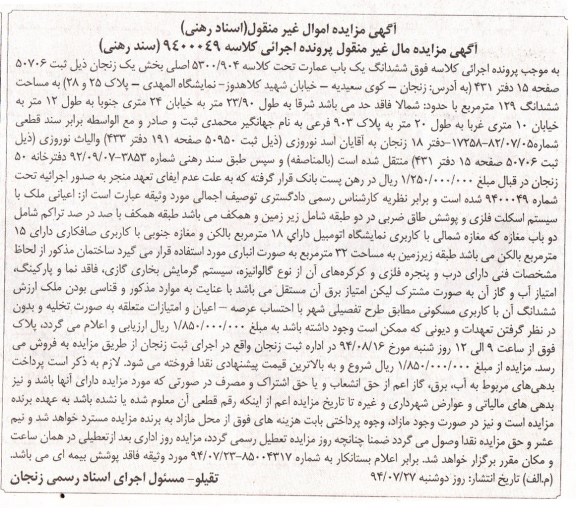 آگهی مزایده اموال غیر منقول(اسناد رهنی)
آگهی مزایده مال غیر منقول پرونده اجرائی کلاسه ۹۴۰۰۰۴۹ (سند رهنی)
به موجب پرونده اجرائی کلاسه فوق ششدانگ یک باب عمارت تحت کلاسه ۵۳۰۰/۹۰۴ اصلی بخش یک زنجان ذیل ثبت ۵۰۷۰۶
صفحه ۱۵ دفتر ۴۳۱ (به آدرس: زنجان – کوی سعیدیه – خیابان شهید کلاهدوز- نمایشگاه المهدی – پلاک ۲۵ و ۲۸) به مساحت
ششدانگ ۱۲۹ مترمربع با حدود: شمالا فاقد حد می باشد شرقا به طول ۲۳/۹۰ متر به خیابان ۲۴ متری جنوبا به طول ۱۲ متر به
خیابان ۱۰ متری غربا به طول ۲۰ متر به پلاک ۹۰۳ فرعی به نام جهانگیر محمدی ثبت و صادر و مع الواسطه برابر سند قطعی
شماره۸۲/۰۷/۰۵-۱۷۲۵۸-دفتر ۱۸ زنجان به آقایان اسد نوروزی (ذیل ثبت ۵۰۹۵۰ صفحه ۱۹۱ دفتر ۴۳۳) والیاث نوروزی (ذیل
ثبت ۵۰۷۰۶ صفحه ۱۵ دفتر ۴۳۱) منتقل شده است (بالمناصفه) و سپس طبق سند رهنی شماره ۳۸۵۳-۹۲/۰۹/۰۷ دفترخانه ۵۰
زنجان در قبال مبلغ ۱/۲۵۰/۰۰۰/۰۰۰ ریال در رهن پست بانک قرار گرفته که به علت عدم ایفای تعهد منجر به صدور اجرائیه تحت
شماره ۹۴۰۰۰۴۹ شده است و برابر نظریه کارشناس رسمی دادگستری توصیف اجمالی مورد وثیقه عبارت است از: اعیانی ملک با
سیستم اسکلت فلزی و پوشش طاق ضربی در دو طبقه شامل زیر زمین و همکف می باشد طبقه همکف با صد در صد تراکم شامل
دو باب مغازه که مغازه شمالی با کاربری نمایشگاه اتومبیل دارای ۱۸ مترمربع بالکن و مغازه جنوبی با کاربری صافکاری دارای ۱۵
مترمربع بالکن می باشد طبقه زیرزمین به مساحت ۳۲ مترمربع به صورت انباری مورد استفاده قرار می گیرد ساختمان مذکور از لحاظ
مشخصات فنی دارای درب و پنجره فلزی و کرکره‌های آن از نوع گالوانیزه، سیستم گرمایش بخاری گازی، فاقد نما و پارکینگ،
امتیاز آب و گاز آن به صورت مشترک لیکن امتیاز برق آن مستقل می باشد با عنایت به موارد مذکور و قناسی بودن ملک ارزش
ششدانگ آن با کاربری مسکونی مطابق طرح تفصیلی شهر با احتساب عرصه – اعیان و امتیازات متعلقه به صورت تخلیه و بدون
در نظر گرفتن تعهدات و دیونی که ممکن است وجود داشته باشد به مبلغ ۱/۸۵۰/۰۰۰/۰۰۰ ریال ارزیابی و اعلام می گردد، پلاک
فوق از ساعت ۹ الی ۱۲ روز شنبه مورخ ۹۴/۰۸/۱۶ در اداره ثبت زنجان واقع در اجرای ثبت زنجان از طریق مزایده به فروش می
رسد. مزایده از مبلغ ۱/۸۵۰/۰۰۰/۰۰۰ ریال شروع و به بالاترین قیمت پیشنهادی نقدا فروخته می شود. لازم به ذکر است پرداخت
بدهی‌های مربوط به آب، برق، گاز اعم از حق انشعاب و یا حق اشتراک و مصرف در صورتی که مورد مزایده دارای آنها باشد و نیز
بدهی های مالیاتی و عوارض شهرداری و غیره تا تاریخ مزایده اعم از اینکه رقم قطعی آن معلوم شده یا نشده باشد به عهده برنده
مزایده است و نیز در صورت وجود مازاد، وجوه پرداختی بابت هزینه های فوق از محل مازاد به برنده مزایده مسترد خواهد شد و نیم
عشر و حق مزایده نقدا وصول می گردد ضمنا چنانچه روز مزایده تعطیل رسمی گردد، مزایده روز اداری بعد ازتعطیلی در همان ساعت
و مکان مقرر برگزار خواهد شد. برابر اعلام بستانکار به شماره ۸۵۰۰۴۳۱۷-۹۴/۰۷/۲۳ مورد وثیقه فاقد پوشش بیمه ای می باشد.
(م.الف) تاریخ انتشار: روز دوشنبه ۹۴/۰۷/۲۷ تقیلو- مسئول اجرای اسناد رسمی زنجان